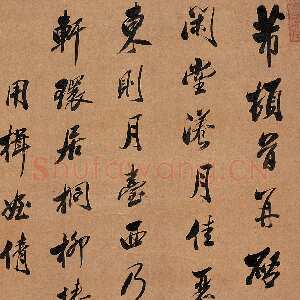 芾頓首再啓
閑堂漾月佳
東則月臺西乃
軒環居桐柳椿
用楫姪倩
Shufawang.CN